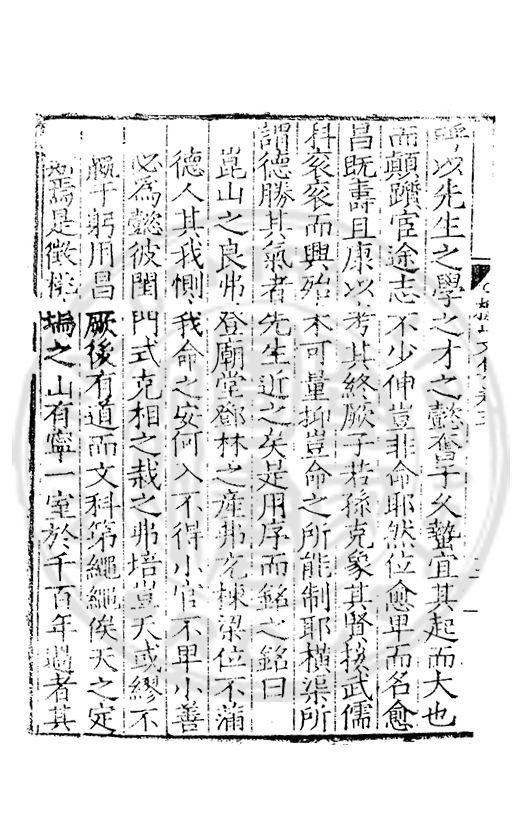 以先生之學之才之懿奮于久蟄宜其起而大也
而顛躓宦途志不少伸豈非命耶然位愈卑而名愈
昌既壽且康以考其終厥子若孫克象其賢接武儒
科袞袞而興殆未可量抑豈命之所能制耶橫渠所
謂德勝其氣者先生近之矣是用序而銘之銘曰
崑山之良弗登廟堂鄧林之產弗充棟梁位不滿
德人其我惻我命之安何入不得小官不卑小善
必為懿彼閨門式克相之栽之弗培豈天或繆不
於躬用昌厥後有道而文科第繩繩俟天之定
焉是徵
塢之山有寧一室於千百年過者其